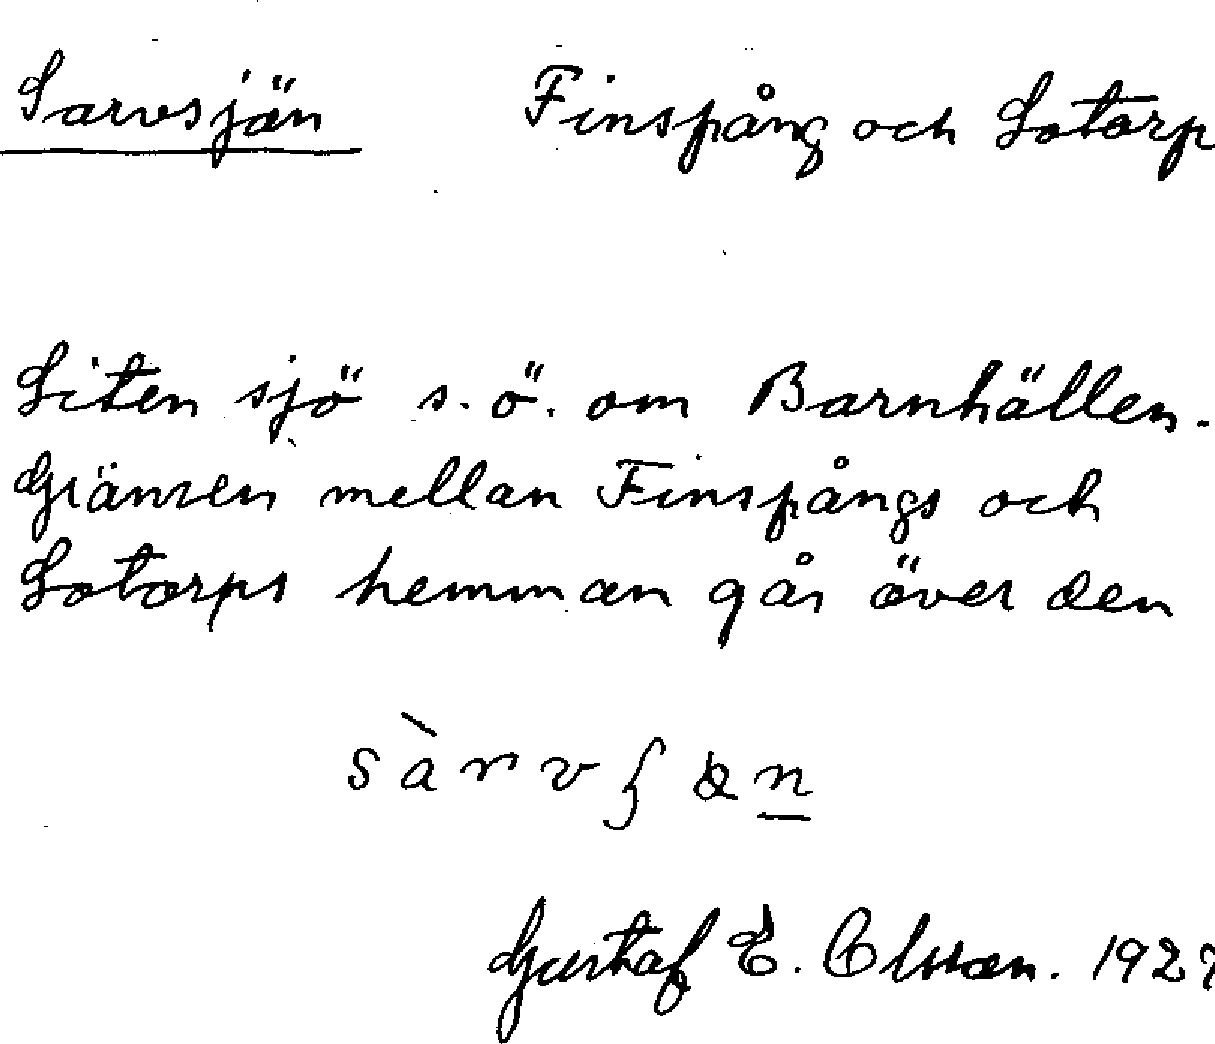 Sarvsjön Finspång och Lotorp
Liten sjö s.ö. om Barnhällen.
Gränsen mellan Finspångs och
Lotorps hemman går över den
Gustaf E. Olsson.